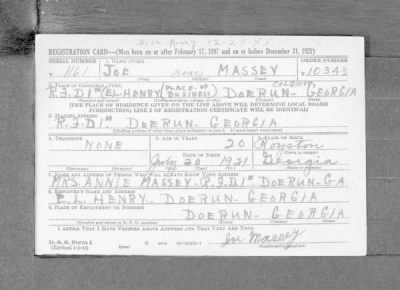 REGISTRATION CARD—(Men born on or after February 17, 1897 and on or before December 31, 1921)
SERIAL NUMBER 1. NAME (Print) ORDER NUMBER
T 1161 JOE MASSEY T 10343
2. PLACE OF RESIDENCE (Print)
R.F.D1# (E.L. HENRY (PLACE-OF BUSINESS) DOERUN- COLQUITT GEORGIA
[THE PLACE OF RESIDENCE GIVEN ON THE LINE ABOVE WILL DETERMINE LOCAL BOARD
JURISDICTION; LINE 2 OF REGISTRATION CERTIFICATE WILL BE IDENTICAL]
3. MAILING ADDRESS
R.F.D1# DOERUN. GEORGIA
[Mailing address if other than place indicated on line 2. If same insert word same]
4. TELEPHONE 5. AGE IN YEARS 6. PLACE OF BIRTH
NONE 20 Houston
DATE OF BIRTH
July 20 1921 Georgia
7. NAME AND ADDRESS OF PERSON WHO WILL ALWAYS KNOW YOUR ADDRESS
MRS. ANNIE MASSEY-(R.F.D1# DOERUN-GA
8. EMPLOYER'S NAME AND ADDRESS
E.L. HENRY- DOERUN- GEORGIA
9. PLACE OF EMPLOYMENT OR BUSINESS
DOERUN- GEORGIA
I AFFIRM THAT I HAVE VERIFIED ABOVE ANSWERS AND THAT THEY ARE TRUE.
D. S. S. Form 1
Joe Massey